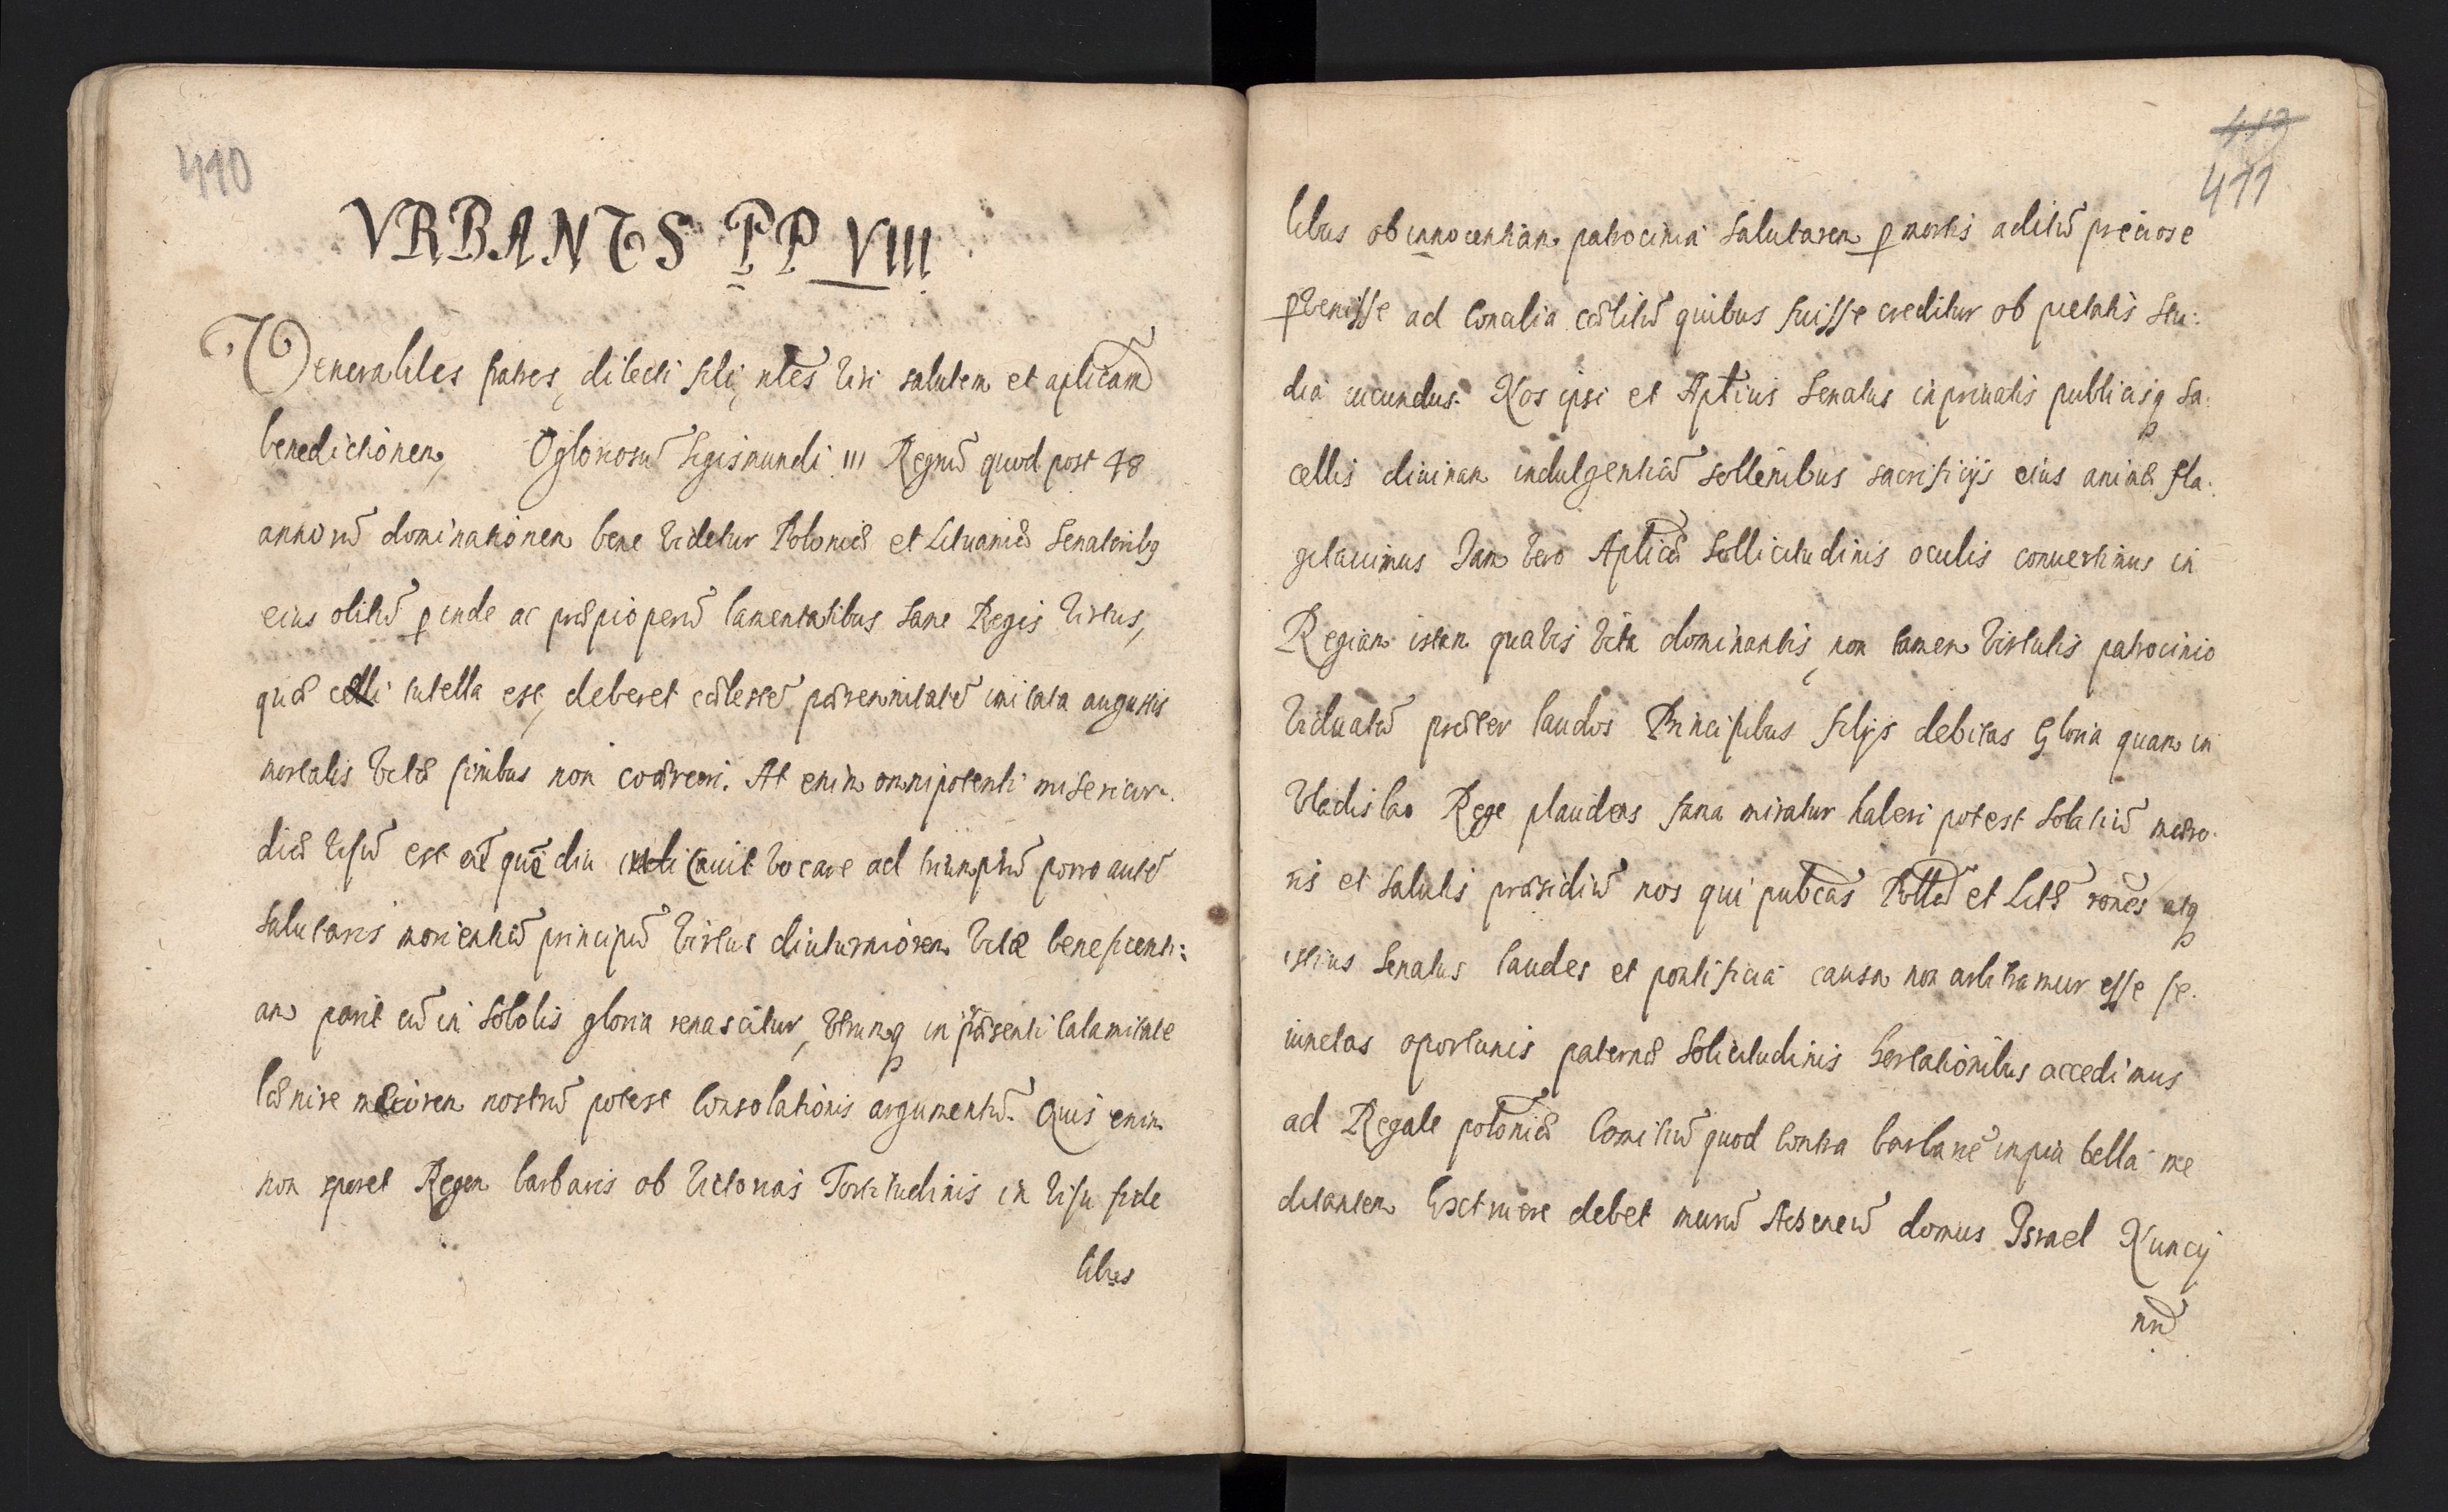 410
VRBANVS PP VIII
Venerabiles fratres, dilecti filii, nobiles viri salutem et aplicam
benedictionem, O gloriosu Sigismundi III Regnu quod post 48
annoru dominationem bene videtur Poloniæ et Lituaniæ Senatoribq
eius obitu perinde ac præpioperu lamentatibus sane Regis virtus,
quæ cæli tutella est, deberet cælestem pærennitate imitata angustis
mortalis vitæ finibus non coærceri. At enim omnipotenti misericor-
diæ visu est eu que diu vocare ad triumphu porro aute
salutaris morientiu principu virtus diuturniorem vitæ beneficenti:
am parit cu in sobolis gloria renascitur, utrumq in præsenti calamitate
lænire mærorem nostru potest Consolationis argumentu. Quis enim
non speret Regem barbaris ob victorias Fortitudinis in visu fide
libus
419
411
libus ob innocentiam patrocinia salutarem p mortis aditu preciose
pvenisse ad Conalia cælitu quibus fuisse creditur ob pietatis stu:
dia iucundus. Nos ipsi et Aptius Senatus in privatis publicisq sa
cellis divinam indulgentia sollenibus sacrificijs eius animæ fla:
gitavimus Jam vero Aplicæ sollicitudinis oculis convertimus in
Regiam istam quavis vita dominantis, non tamen virtutis patrocinio
viduatu præter laudes Principibus filijs debitas Gloria quam in
Vladislao Rege plaudens fama miratur haberi potest solatiu mæro
ris et salutis præsidiu nos qui pubcas Polæ et Litæ rones atq
istius Senatus laudes et pontificia causa non arbitramur esse se
iunctas oportunis paternæ solicitudinis hortationibus accedimus
ad Regale poloniæ Comitiu quod Contra barbarie impia bella me
ditantem Exctruere debet muru Acheneu domus Israel Nuncij
nri